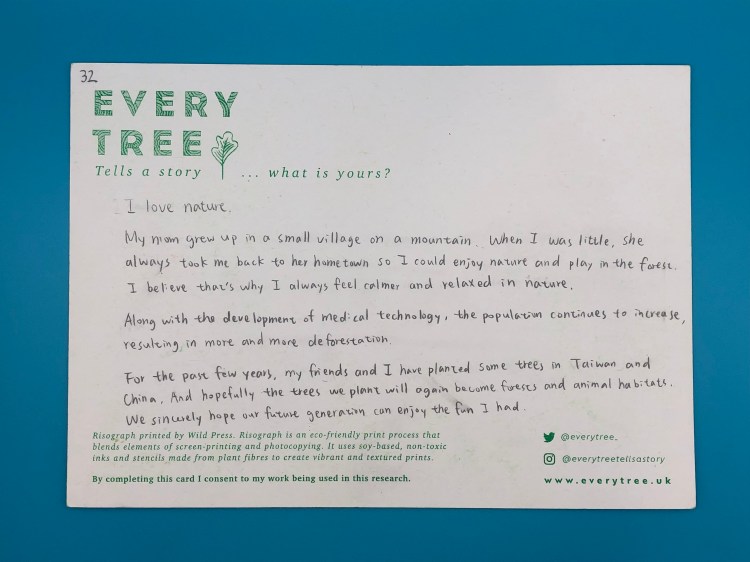 32
EVERY
TREE
Tells a story ... what is yours?
I love nature.
My mom grew up in a small village on a mountain. When I was little, she
always took me back to her hometown so I could enjoy nature and play in the forest.
I believe that's why I always feel calmer and relaxed in nature.
Along with the development of medical technology, the population continues to increase,
resulting in more and more deforestation.
For the past few years, my friends and I have planted some trees in Taiwan and
China. And hopefully the trees we plant will again become forests and animal habitats.
We sincerely hope our future generation can enjoy the fun I had.
Risograph printed by Wild Press. Risograph is an eco-friendly print process that
blends elements of screen-printing and photocopying. It uses soy-based, non-toxic
inks and stencils made from plant fibres to create vibrant and textured prints.
By completing this card I consent to my work being used in this research.
@everytree_
@everytreetellsastory
www.everytree.uk